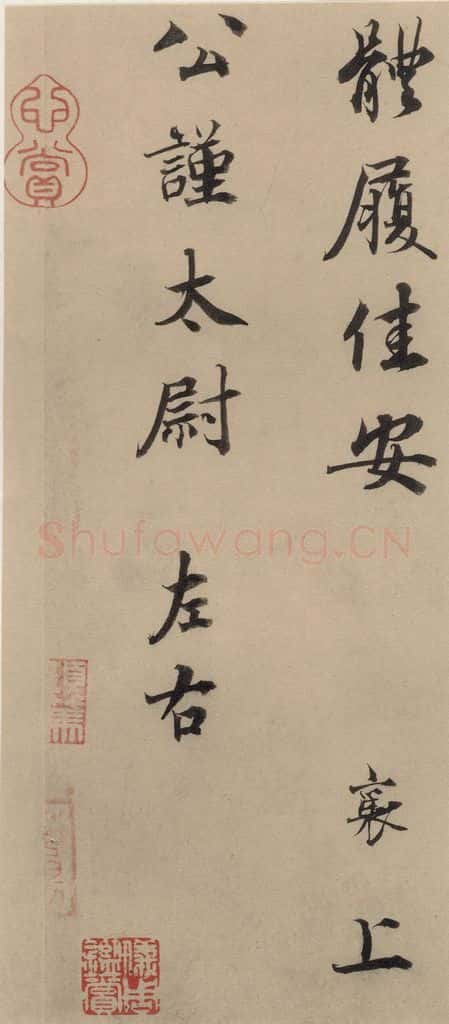 體履佳安 襄上
公謹太尉 左右
Shufawang.CN